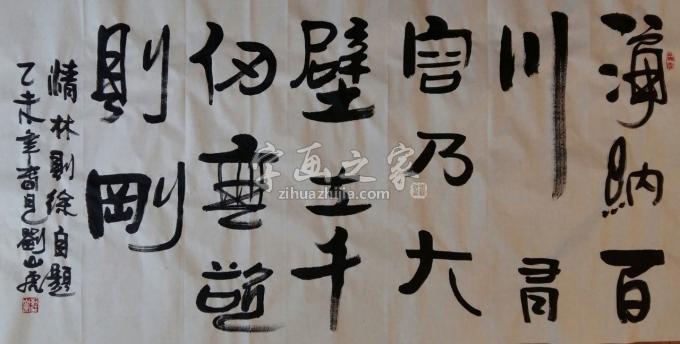 海納百
川有
容乃大
壁立千
仞無欲
則剛
清林則徐自題
乙未年劉山虎
字画之家
zihuazhijia.com